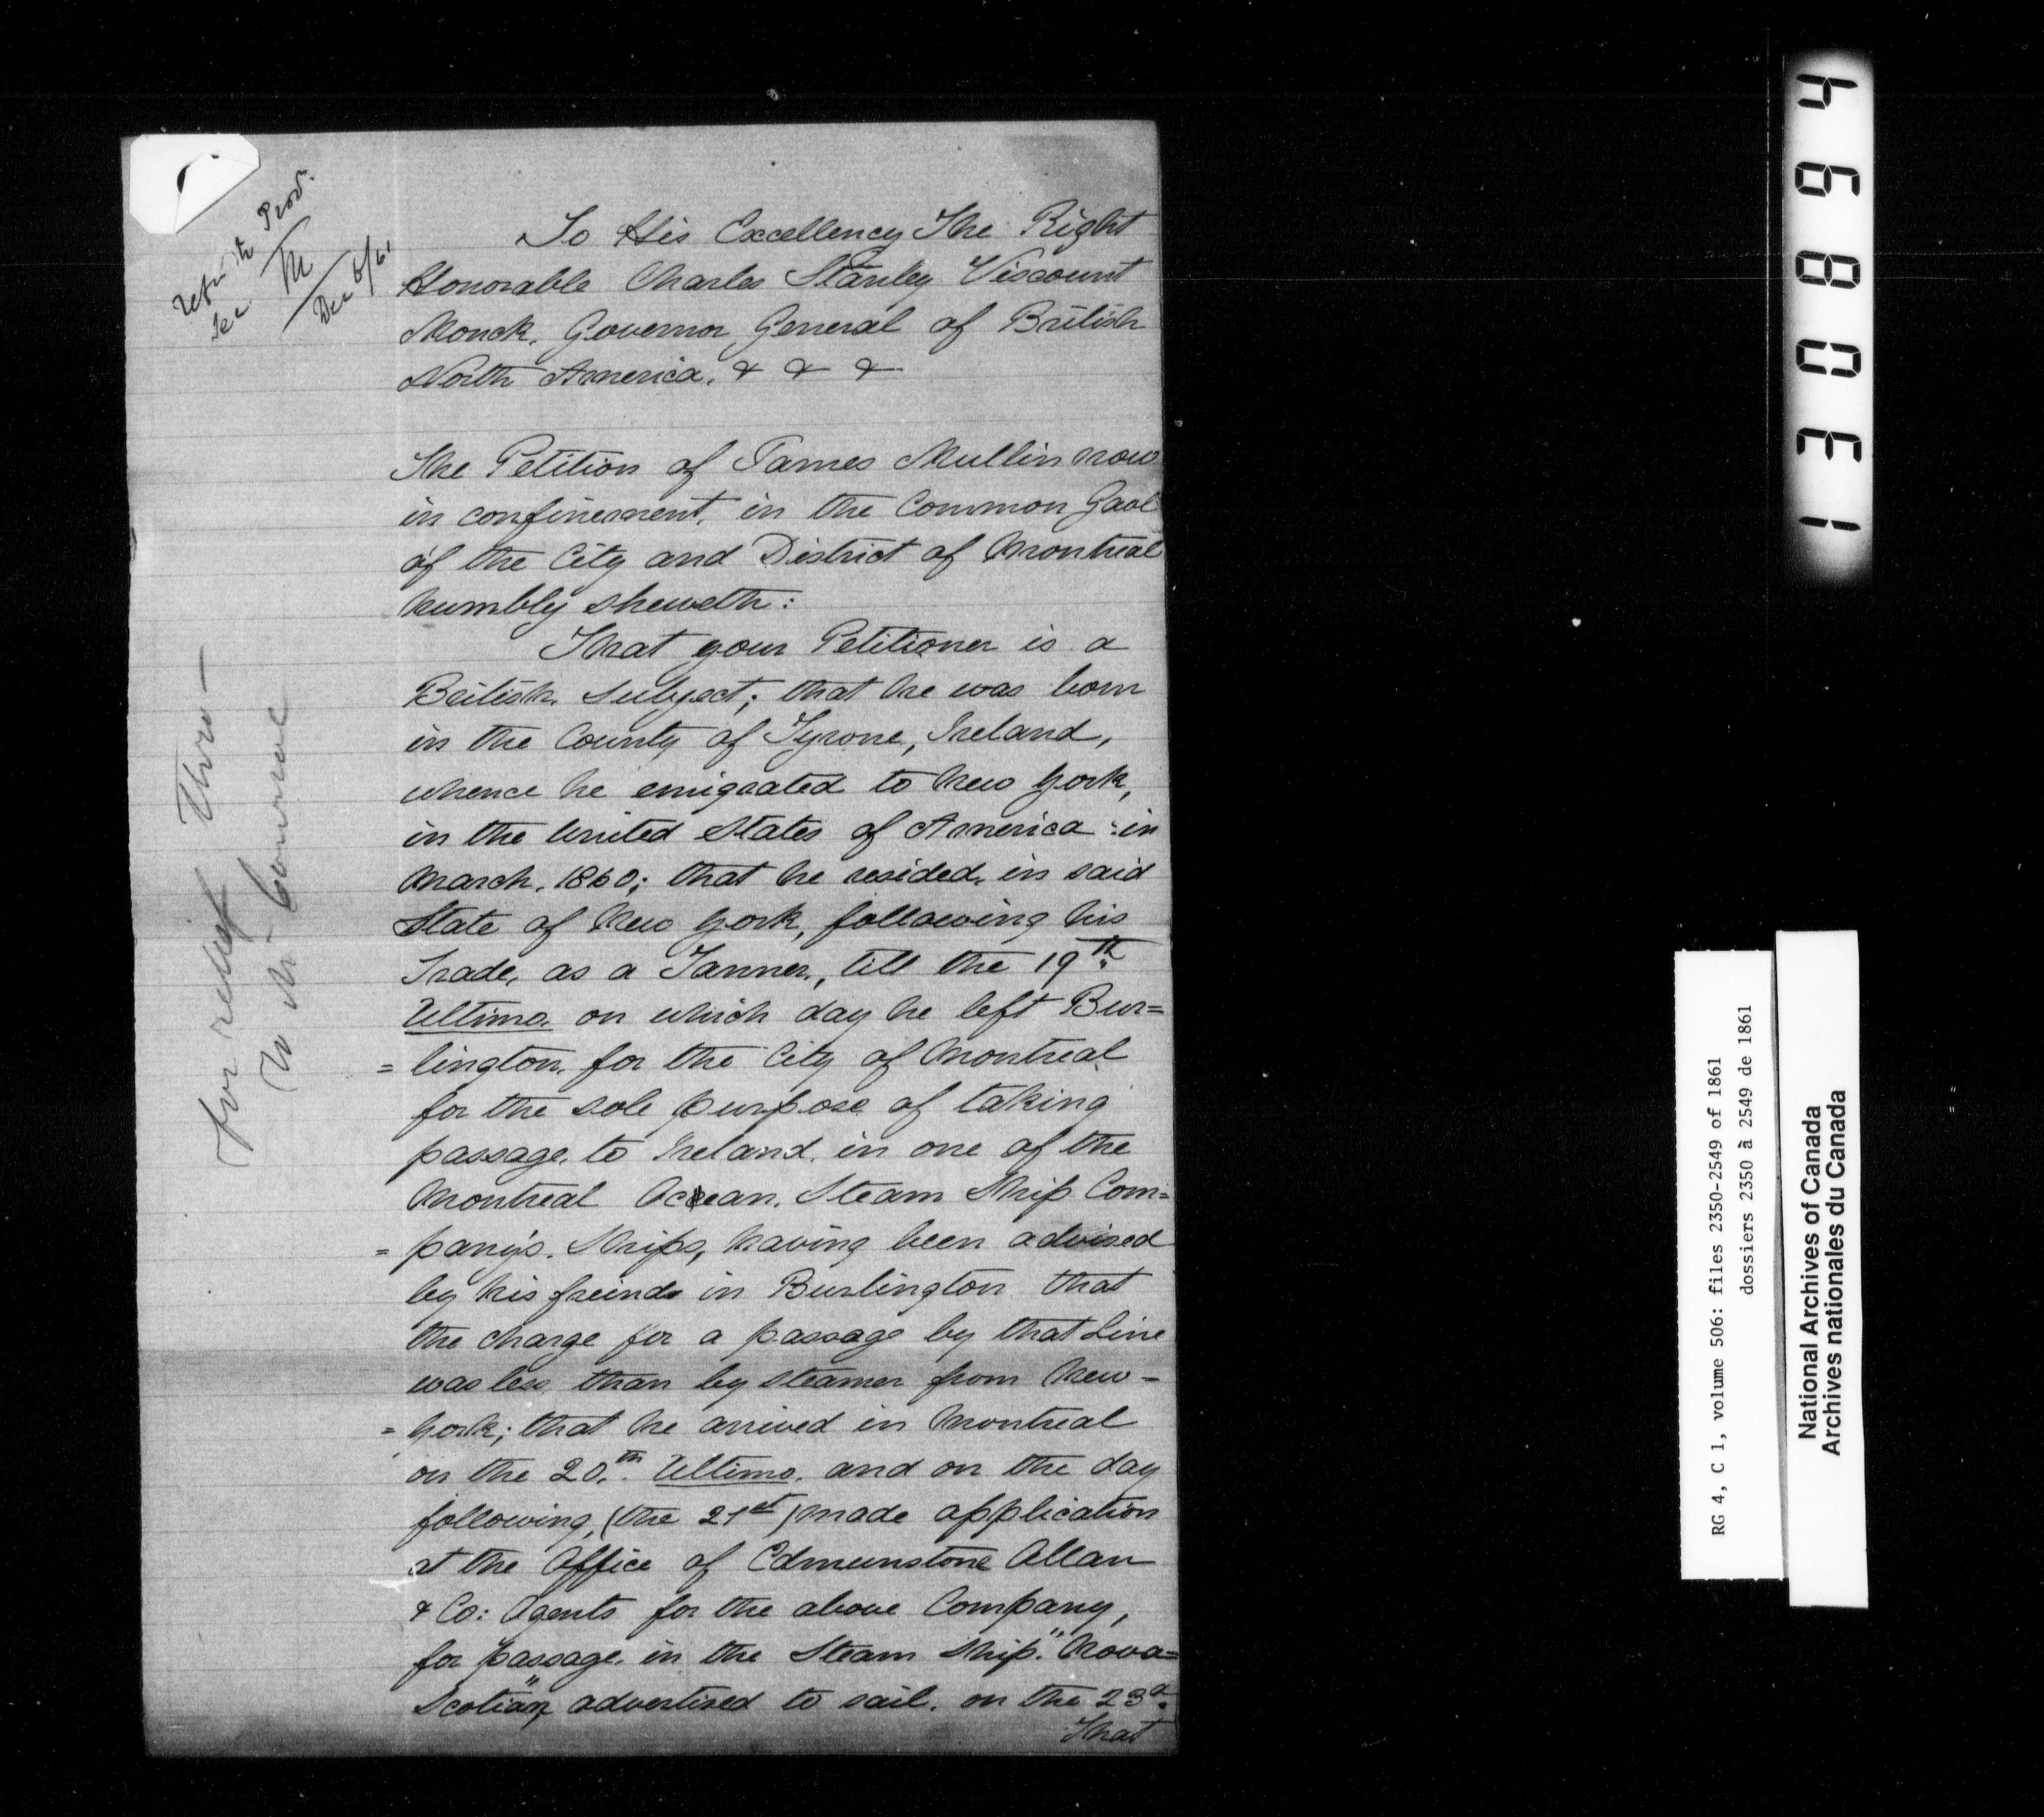 Refer to Prov.
Sec
M
Dec 6/61
To His Excellency The Right
Honorable Charles Stanley Viscount
Monck, Governor General of British
North America, & & &
The Petition of James Mullin now
in confinement, in the Common Gaol
of the City and District of Montreal
humbly sheweth:
That your Petitioner is a
British subject; that he was born
in the County of Tyrone, Ireland,
whence he emigrated to New York,
in the United States of America in
March, 1860; that he resided, in said
State of New York, following his
Trade, as a Tanner, till the 19th
Ultimo, on which day he left Bur=
=lington, for the City of Montreal
for the sole purpose of taking
passage, to Ireland, in one of the
Montreal Ocean, Steam Ship Com=
=pany's. Ships, having been advised
by his freinds in Burlington that
the charge for a passage by that Line
was less, than by steamer from New-
=York; that he arrived in Montreal
on the 20.th Ultimo, and on the day
following, (the 21st) made application
at the Office of Edmunstone Allan
& Co: Agents for the above Company,
for passage, in the Steam Ship. "Nova=
Scotian" advertised to sail, on the 23d.
That
For relief
130894
RG 4, C 1, volume 506: files 2350-2549 of 1861
dossiers 2350 à 2549 de 1861
National Archives of Canada
Archives nationales du Canada